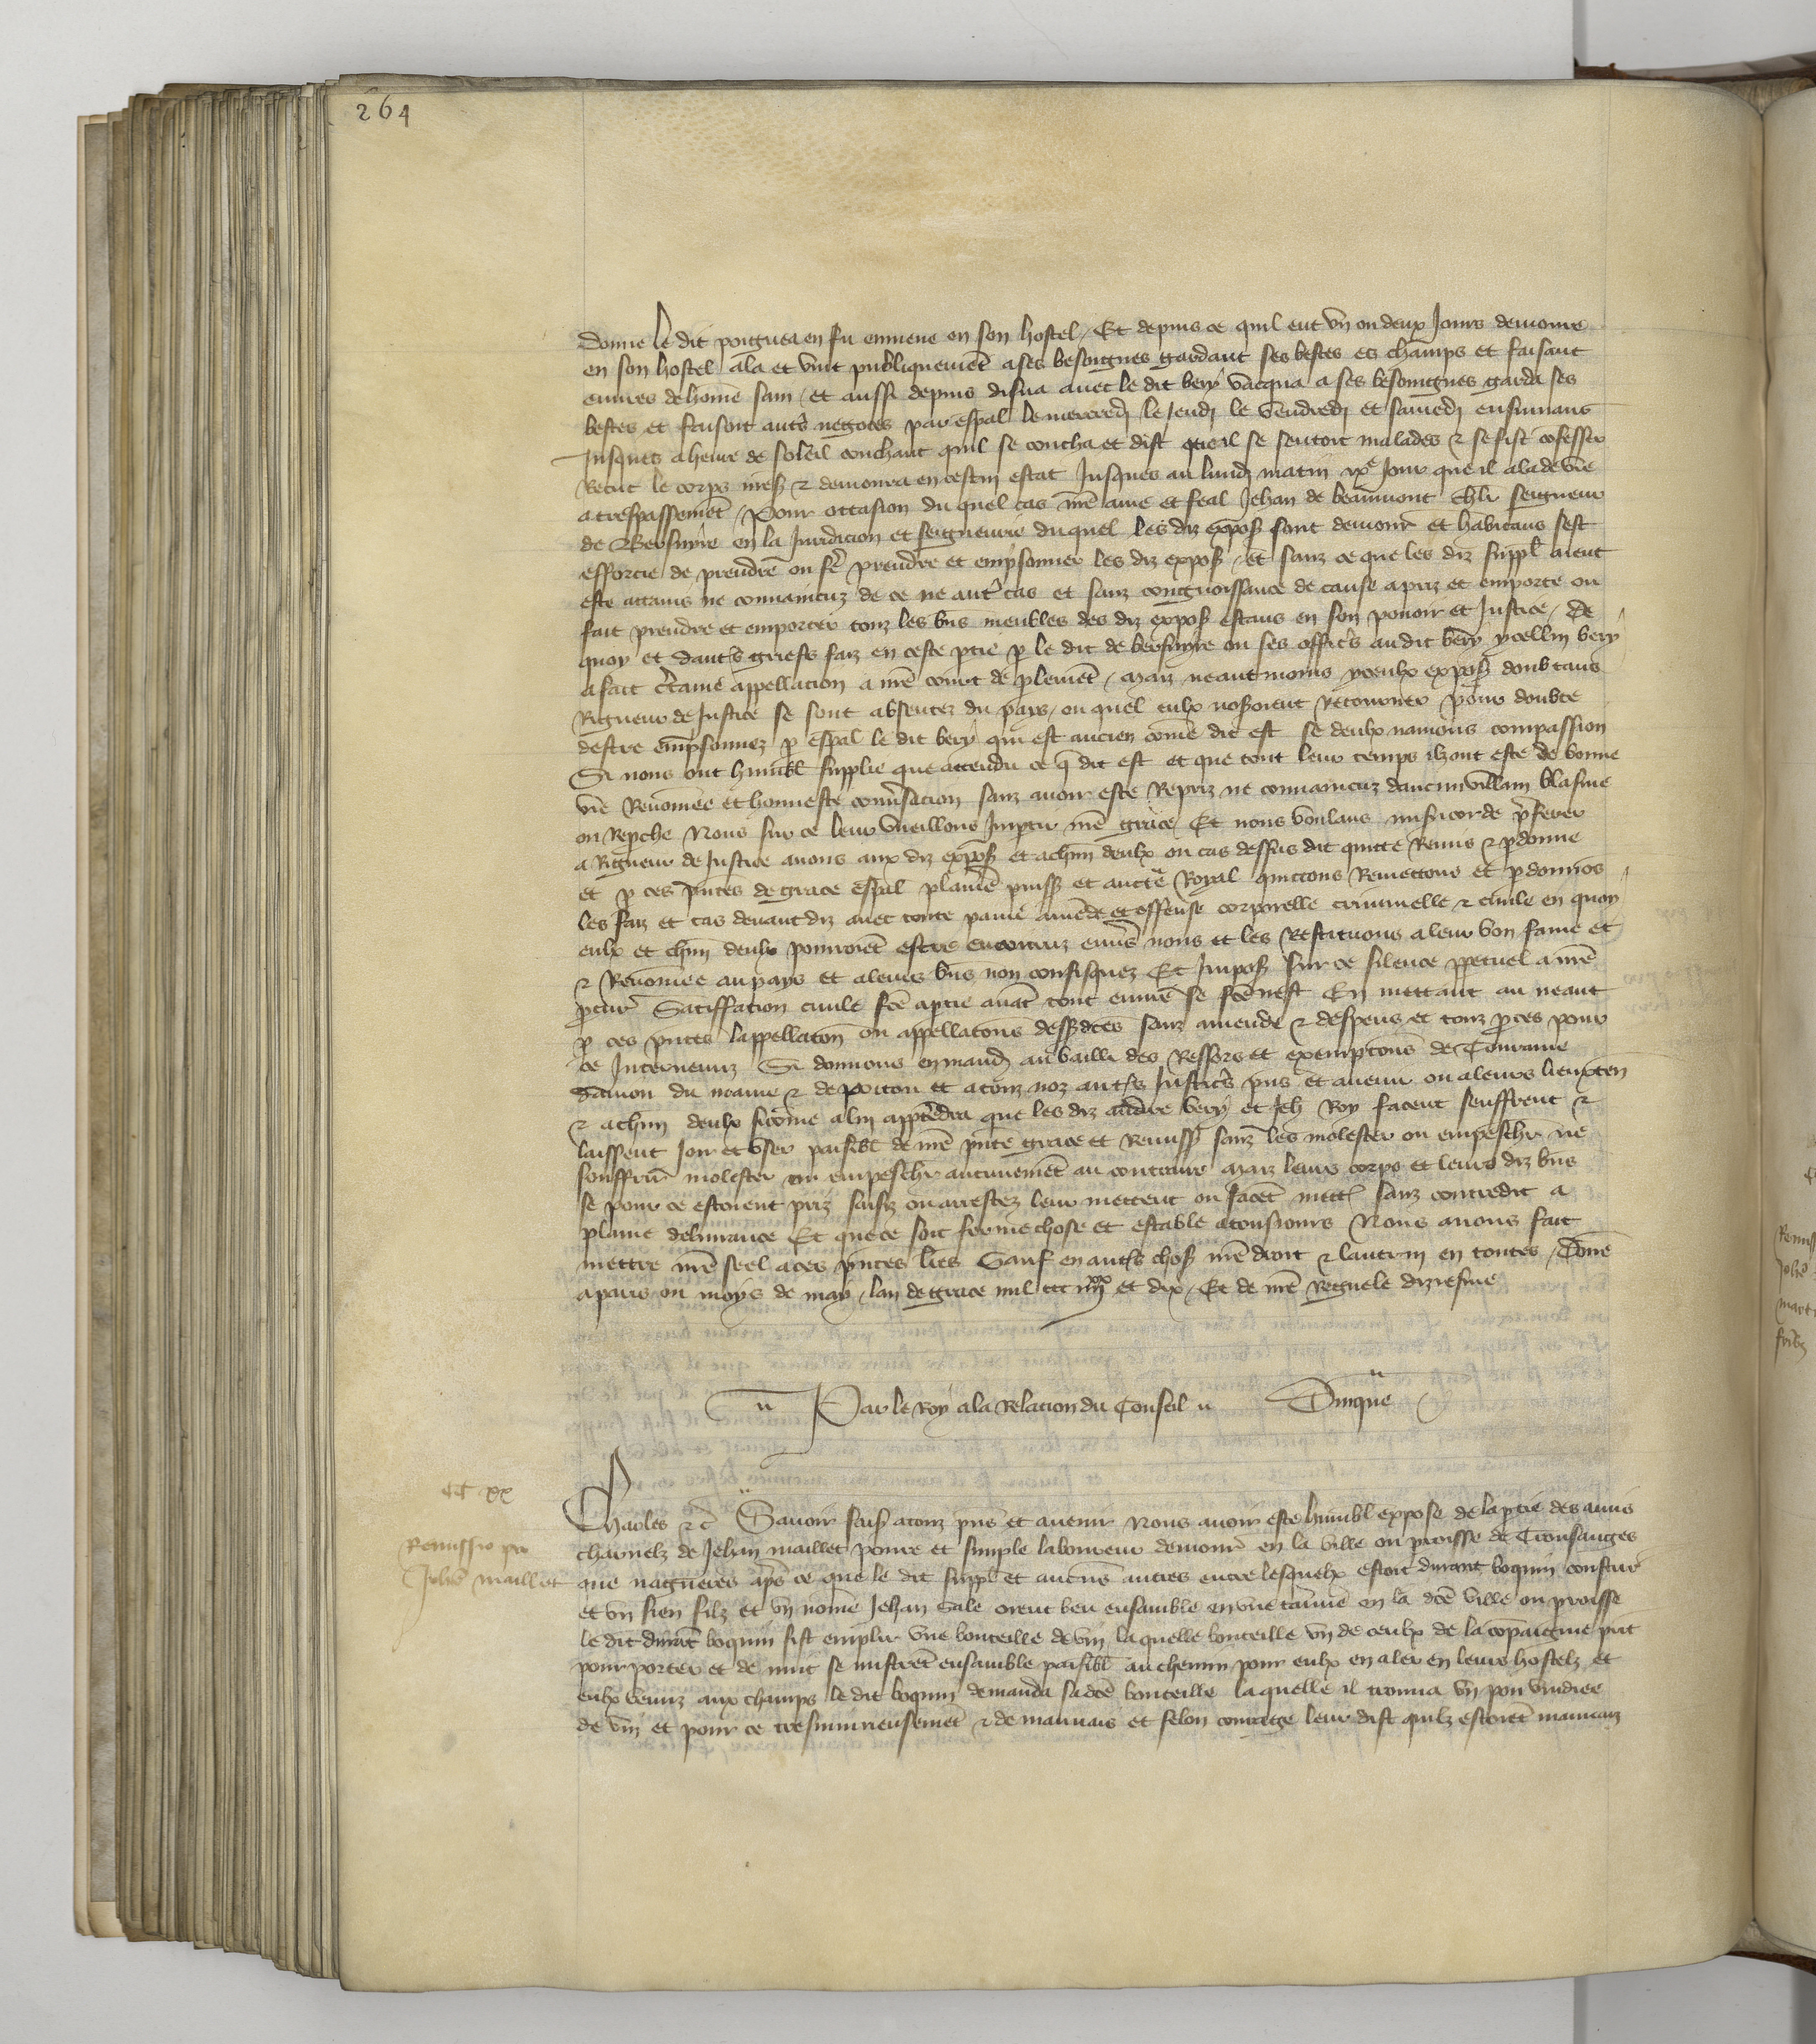 264
donne le dit poigneur en fu enmene en son hostel / Et depuis ce quil eut vn ou deux Jours demoure
en son hostel ala et vint publiquemēt a ses besoignes gardant ses bestes es champs et faisant
euures de home sain / et aussi depuis disna auec le dit bery vacqua a ses besoingnes garda ses
bestes et faisoit autrs negoces par espal le mercredj le Jeudj le vendredj et samedj ensuiuans
Jusques a heure de soleil couchant quil se coucha et dist que il se sentoit malades & se fist cōfesser
Recut le corps nrēs & demoura en cestui estat Jusques au lundj matin ixe Jour que il ala de vie
a trespassemēt / Pour occasion du quel cas nrē ame et feal Jehan de beaumont chlr seigneur
de Bersuyre en la Juridicion et seigneurie duquel les diz exposs sont demourās et habitans sest
efforcie de prendre ou fere prendre et emprisonner les diz exposs / et sanz ce que les diz suppls aient
este attains ne conuaincuz de ce ne autre cas et sanz congnoissance de cause a priz et emporte ou
fait prendre et emporter touz les bns meubles des diz exposs estans en son pouoir et Justice / De
quoy et dautrs griefs faiz en ceste ptie p le dit de bersuyre ou ses officrs au dit bery ycellui bery
a fait crtaine appellacion a nrē court de plement / maiz neantmoins yceulx exposs doubtans
Rigueur de Justice se sont absentez du pays / ou quel eulx noseroient Retourner pour doubte
destre emprisonnez p espal le dit bery qui est ancien come dit est se deulx nauions compassion
Si nous ont humbl supplie que attendu ce q dit est et que tout leur temps ilz ont este de bonne
vie Renomee et honneste conusacion sanz auoir este Repriz ne conuaincuz daucun villain blasme
ou Reproche Nous sur ce leur vueillons Impartir nrē grace Et nous voulans misericorde prferer
a Rigueur de Justice auons aux diz exposs et a chūn deulx ou cas dessus dit quitte Remis & pdonne
et p ces pntes de grace espal plaine puiss et aucte Royal quittons Remettons et pdonnōs
les faiz et cas deuant diz auec toute paine amēde et offense corporelle criminelle & ciuile en quoy
eulx et chūn deulx pourroiēt estre encouruz enurs nous et les Restituons a leur bon fame et
& Renomee au pays et a leurs bns non confisquez Et Imposs sur ce silence ppetuel a nrē
pcur Satiffacion ciuile fcē a ptie auāt tout euure se fcē nest En mettant au neant
p ces pntes lappellacon ou appellacons dessdctes sanz amende & despens et touz pces pour
ce Interuenuz Si donnons en mandt au bailli des Ressors et exempcons de Touraine
danion du maine & de poitou et a touz noz autrs Justicrs pns et auenir ou a leurs lieuxten
& a chūn deulx sicome a lui apptēdra que les diz andre bery et Jeh Roy facent seuffrent &
laissent Joir et vser paisibl de nrē pnte grace et Remiss sanz les molester ou empeschr ne
souffrir molester ou empeschr aucunemēt au contraire maiz leurs corps et leurs diz bns
se pour ce estoient priz saisiz ou arrestez leur mettent ou facēt mettr sanz contredit a
plaine deliurance Et que ce soit ferme chose et estable a tousiours Nous auons fait
mettre nrē seel a ces pntes lrēs Sauf en autrs choss nrē droit & lautrui en toutes / Donē
a paris ou moys de may / lan de grace mil ccc iiijxx et dix / Et de nrē Regne le diziesme
Par le Roy a la Relacion du Conseil
cc xx
Remissio pro
Johē maillet
Charles &c Sauoir faiss a touz pns et auenir Nous auoir este humbl expose de la ptie des amis
charnelz de Jehan maillet poure et simple laboureur demourt en la ville ou proisse de Cronsanges
que nagueres apres ce que le dit suppl et aucuns autres entre lesquelx estoit durant boquin
et vn sien filz et vn nome Jehan Sale orent beu ensamble en vne tauerne en la dcē ville ou proisse
le dit durāt boquin fist emplir vne bouteille de vin laquelle bouteille vn de ceulx de la cōpaignie prit
pour porter et de nuit se mistrēt ensamble paisibl au chemin pour eulx en aler en leurs hostelz et
eulx venuz aux champs le dit boquin demanda sa dcē bouteille laquelle il trouua vn pou vuidiee
de vin et pour ce tresiniurieusemēt & de mauuais et felon courage leur dist quilz estoiēt mauuaiz